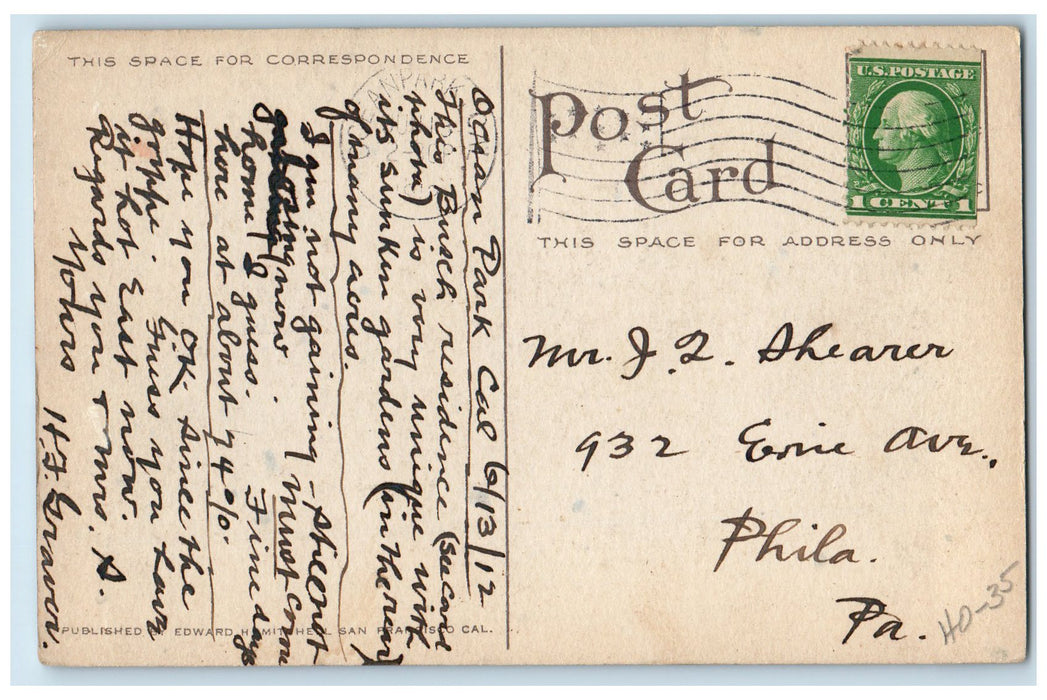 THIS SPACE FOR CORRESPONDENCE
Post
Card
U.S. POSTAGE
1 CENT 1
THIS SPACE FOR ADDRESS ONLY
Ocean Park Cal 6/13/12
This Busch residence (see card
whom) is very unique with
its sunken gardens (in the rear)
of many acres.
I am not gaining - Still not
now. must come
home I guess. Fine days
here at about 74%.
Hope you OK. Since the
Guess you have
it hot East now.
Regards you & Mrs. S.
Yours
H.F. Graver.
Mr. J. L. Shearer
932 Erie Ave.,
Phila.
Pa.
HO-35
PUBLISHED BY EDWARD H. MITCHELL SAN FRANCISCO CAL.